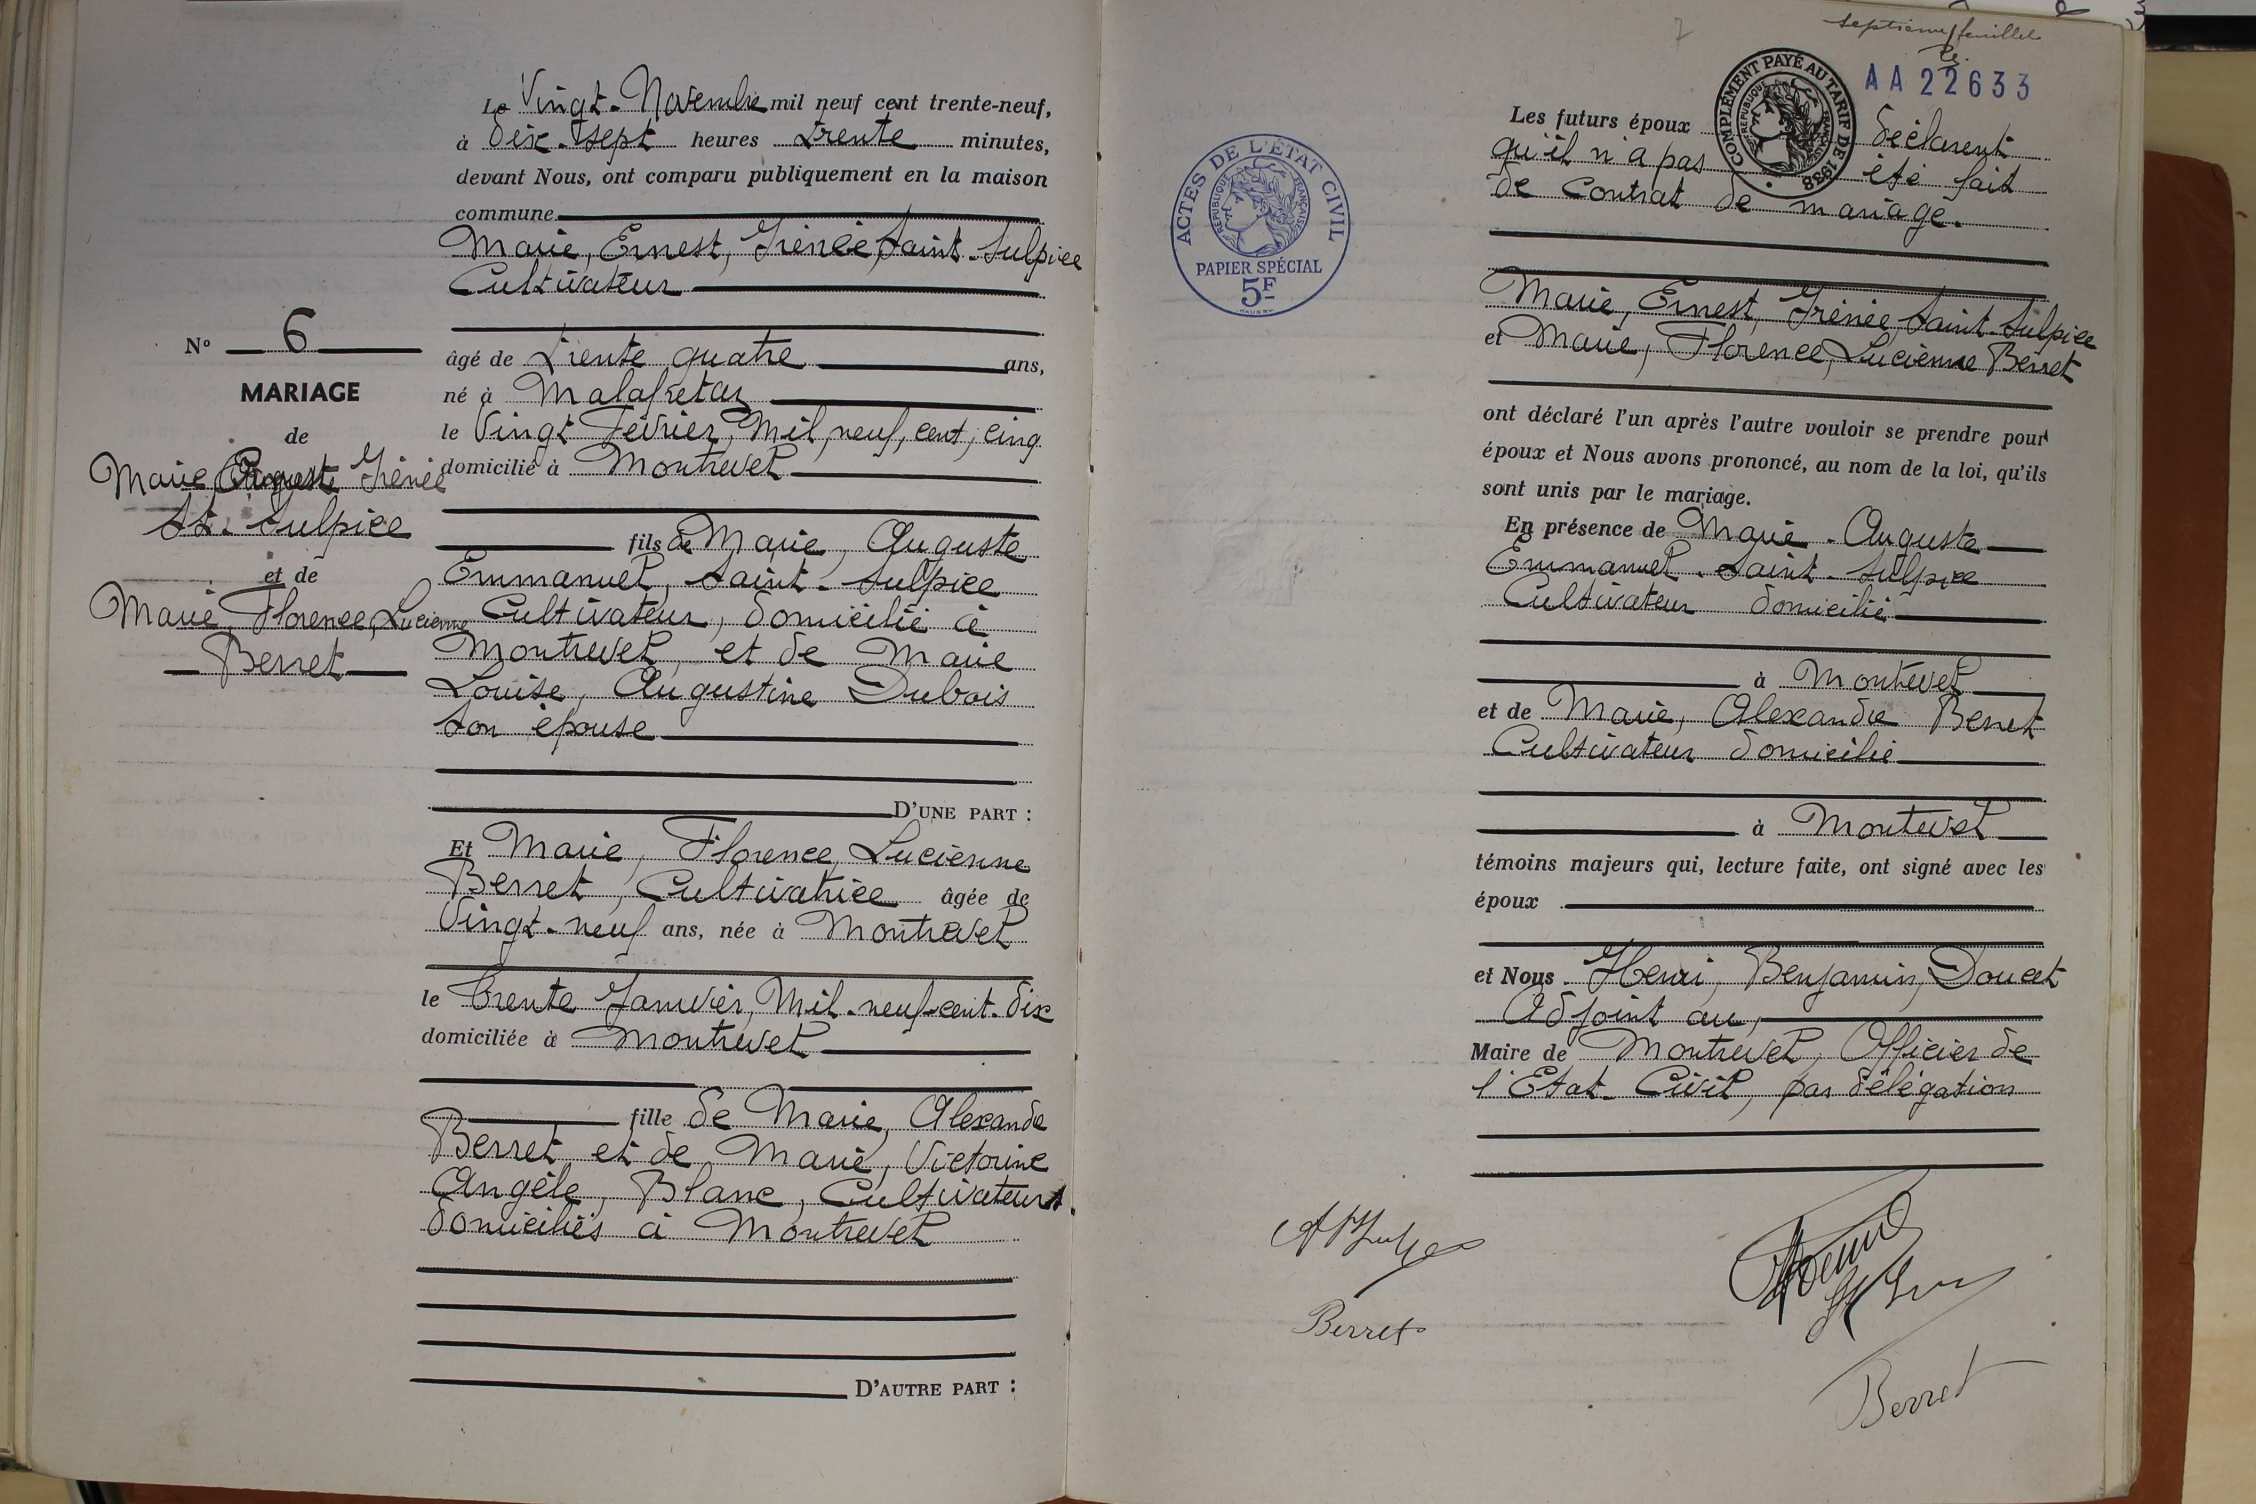 Le Vingt-Novembre mil neuf cent trente-neuf,
à Dix-sept heures trente minutes,
devant Nous, ont comparu publiquement en la maison
commune
Marie, Ernest, Irénée, Saint-Sulpice
Cultivateur
âgé de trente quatre ans,
né à Malafretaz
le Vingt Février, Mil, neuf, cent, cinq
domicilié à Montrevel
fils de Marie, Auguste
Emmanuel, Saint-Sulpice
Cultivateur, domicilié à
Montrevel, et de Marie
Louise, Augustine Dubois
son épouse
D'UNE PART :
Et Marie, Florence, Lucienne
Berret, Cultivatrice âgée de
Vingt-neuf ans, née à Montrevel
le trente Janvier, Mil-neuf-cent-dix
domiciliée à Montrevel
fille de Marie, Alexandre
Berret et de Marie, Victorine
Angèle, Blanc, Cultivateurs
domiciliés à Montrevel
D'AUTRE PART :
N° 6
MARIAGE
de
Marie, Ernest Irénée
St-Sulpice
et de
Marie, Florence, Lucienne
Berret
ACTES DE L'ÉTAT CIVIL
RÉPUBLIQUE FRANÇAISE
PAPIER SPÉCIAL
5F
7
septième feuillet
AA 22633
COMPLÉMENT PAYÉ AU TARIF DE 1938
RÉPUBLIQUE FRANÇAISE
Les futurs époux déclarent
qu'il n'a pas été fait
de Contrat de mariage.
Marie, Ernest, Irénée, Saint-Sulpice
et Marie, Florence, Lucienne Berret
ont déclaré l'un après l'autre vouloir se prendre pour
époux et Nous avons prononcé, au nom de la loi, qu'ils
sont unis par le mariage.
En présence de Marie-Auguste
Emmanuel-Saint-Sulpice
Cultivateur domicilié
à Montrevel
et de Marie, Alexandre Berret
Cultivateur domicilié
à Montrevel
témoins majeurs qui, lecture faite, ont signé avec les
époux
et Nous Henri, Benjamin, Doucet
Adjoint au,
Maire de Montrevel, Officier de
l'Etat-Civil, par délégation
Berret
Berret